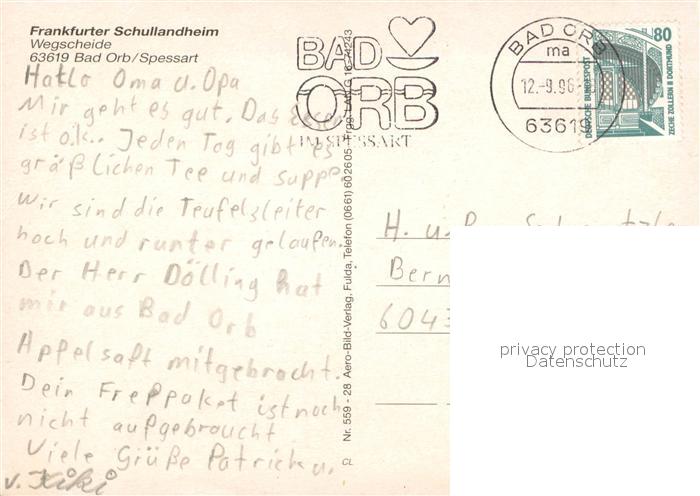 Frankfurter Schullandheim
Wegscheide
63619 Bad Orb/Spessart
Hallo Oma u. Opa
Mir geht es gut. Das Essen
ist o.k.. Jeden Tag gibt es
gräßlichen Tee und Suppe.
Wir sind die Teufelsleiter
hoch und runter gelaufen.
Der Herr Dölling hat
mir aus Bad Orb
Apfelsaft mitgebracht.
Dein Freßpaket ist noch
nicht aufgebraucht
Viele Grüße Patrick u.
v. Kiki
BAD
ORB
IM SPESSART
BAD ORB
ma
12.-9.96
63619
80
DEUTSCHE BUNDESPOST
ZECHE ZOLLERN II DORTMUND
Nr. 559 - 28 Aero-Bild-Verlag, Fulda, Telefon (0661) 602605
CL
H. u.
Bern
6043
privacy protection
Datenschutz